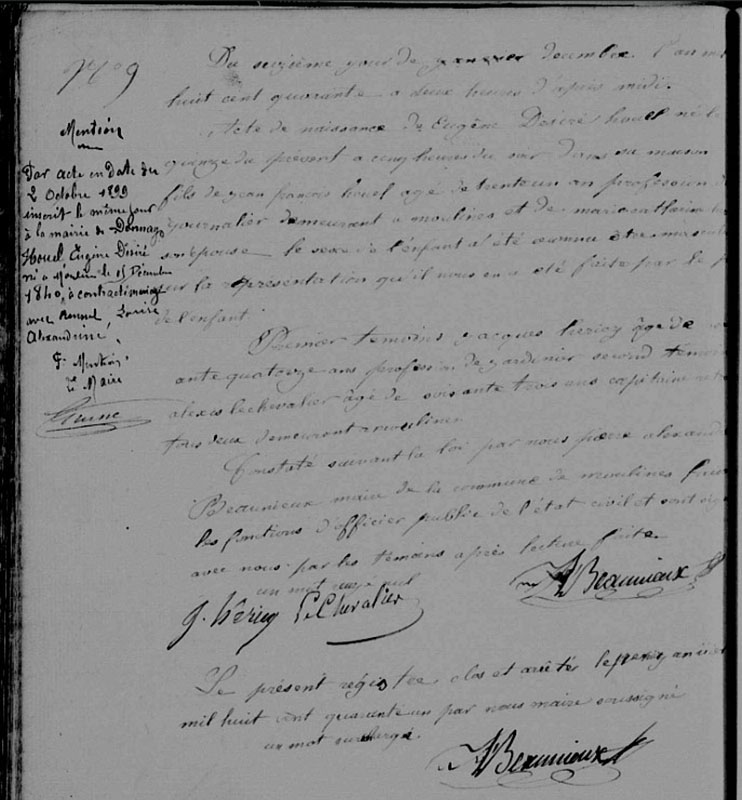 N° 9
Mention
Par acte en date du
2 Octobre 1899
inscrit le même jour
à la mairie de
Houel Eugène Désiré
né à Moulines le 15 Décembre
1840, a contracté mariage
avec Louise
Alexandrine
Pr Mention
Le Maire
Du seizième jour de janvier decembre. l'an mil
huit cent quarante a deux heures d'après midi.
Acte de naissance de Eugène Desiré houel né le
quinze du présent a cinq heures du soir dans sa maison
fils de jean françois houel agé de trente un an profession de
journalier demeurant a moulines et de marie catherine
son épouse le sexe de l'enfant a été reconnu être masculin
sur la représentation qu'il nous en a été faite par le p
de l'enfant.
Premier temoins jacques hericy âgé de
ante quatorze ans profession de jardinier second temoin
alexis lechevalier âgé de soisante trois ans capitaine
tous deux demeurant a moulines
Constaté suivant la loi par nous pierre alexandre
Beaunieux maire de la commune de moulines
les fonctions d'officier public de l'état civil et sont
avec nous par les temoins après lecture faite.
un mot rayé nul
J. Hericy LeChevalier
A Beaunieux
Le présent régistre clos et arrêtés le janvier
mil huit cent quarante un par nous maire soussigné
un mot surchargé
A Beaunieux